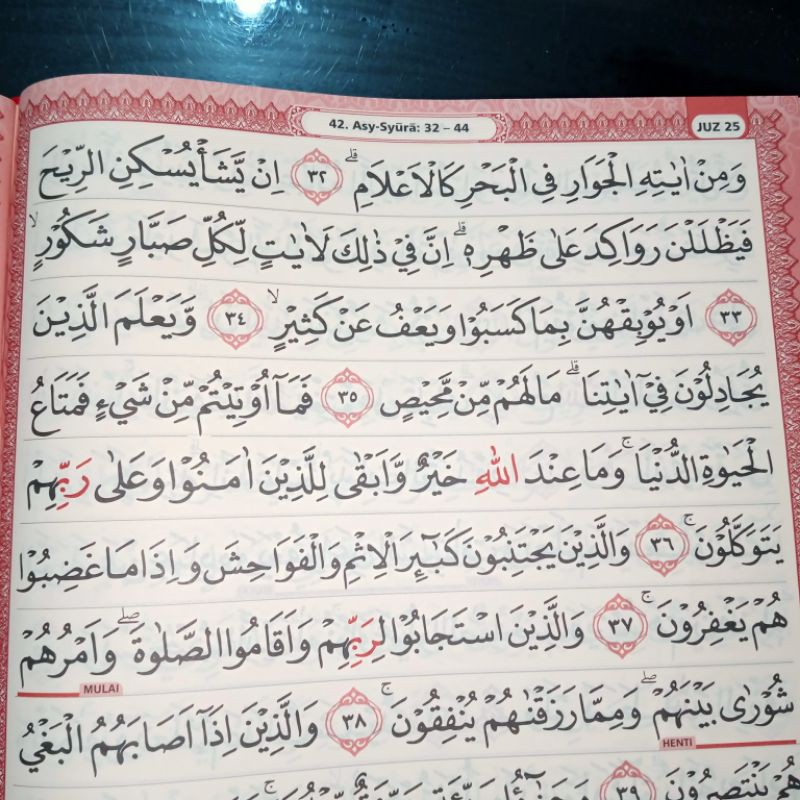 42. Asy-Syūrā: 32 – 44
JUZ 25
وَمِنْ اٰيٰتِهِ الْجَوَارِ فِى الْبَحْرِ كَالْاَعْلَامِ ۗ ٣٢ اِنْ يَّشَأْ يُسْكِنِ الرِّيْحَ
فَيَظْلَلْنَ رَوَاكِدَ عَلٰى ظَهْرِهٖ ۗ اِنَّ فِيْ ذٰلِكَ لَاٰيٰتٍ لِّكُلِّ صَبَّارٍ شَكُوْرٍ ۙ
٣٣ اَوْ يُوْبِقْهُنَّ بِمَا كَسَبُوْا وَيَعْفُ عَنْ كَثِيْرٍ ۙ ٣٤ وَّيَعْلَمَ الَّذِيْنَ
يُجَادِلُوْنَ فِيْٓ اٰيٰتِنَا ۗ مَا لَهُمْ مِّنْ مَّحِيْصٍ ٣٥ فَمَآ اُوْتِيْتُمْ مِّنْ شَيْءٍ فَمَتَاعُ
الْحَيٰوةِ الدُّنْيَا ۚ وَمَا عِنْدَ اللّٰهِ خَيْرٌ وَّاَبْقٰى لِلَّذِيْنَ اٰمَنُوْا وَعَلٰى رَبِّهِمْ
يَتَوَكَّلُوْنَ ۚ ٣٦ وَالَّذِيْنَ يَجْتَنِبُوْنَ كَبٰۤىِٕرَ الْاِثْمِ وَالْفَوَاحِشَ وَاِذَا مَا غَضِبُوْا
هُمْ يَغْفِرُوْنَ ۚ ٣٧ وَالَّذِيْنَ اسْتَجَابُوْا لِرَبِّهِمْ وَاَقَامُوا الصَّلٰوةَ ۖ وَاَمْرُهُمْ
MULAI
شُوْرٰى بَيْنَهُمْ ۖ وَمِمَّا رَزَقْنٰهُمْ يُنْفِقُوْنَ ۚ ٣٨ وَالَّذِيْنَ اِذَآ اَصَابَهُمُ الْبَغْيُ
HENTI
هُمْ يَنْتَصِرُوْنَ ٣٩